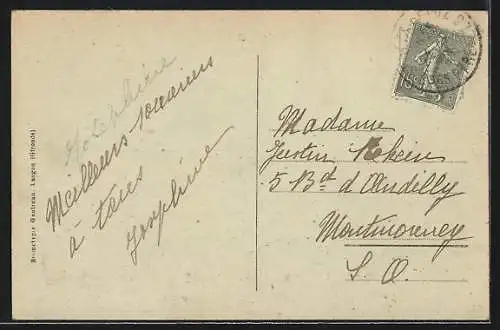 Joséphine
Meilleurs souvenirs
à tous
Joséphine
Bromotypie Gautreau, Langon (Gironde)
Madame
Justin
5 Bd d'Andilly
Montmorency
S. O.
15